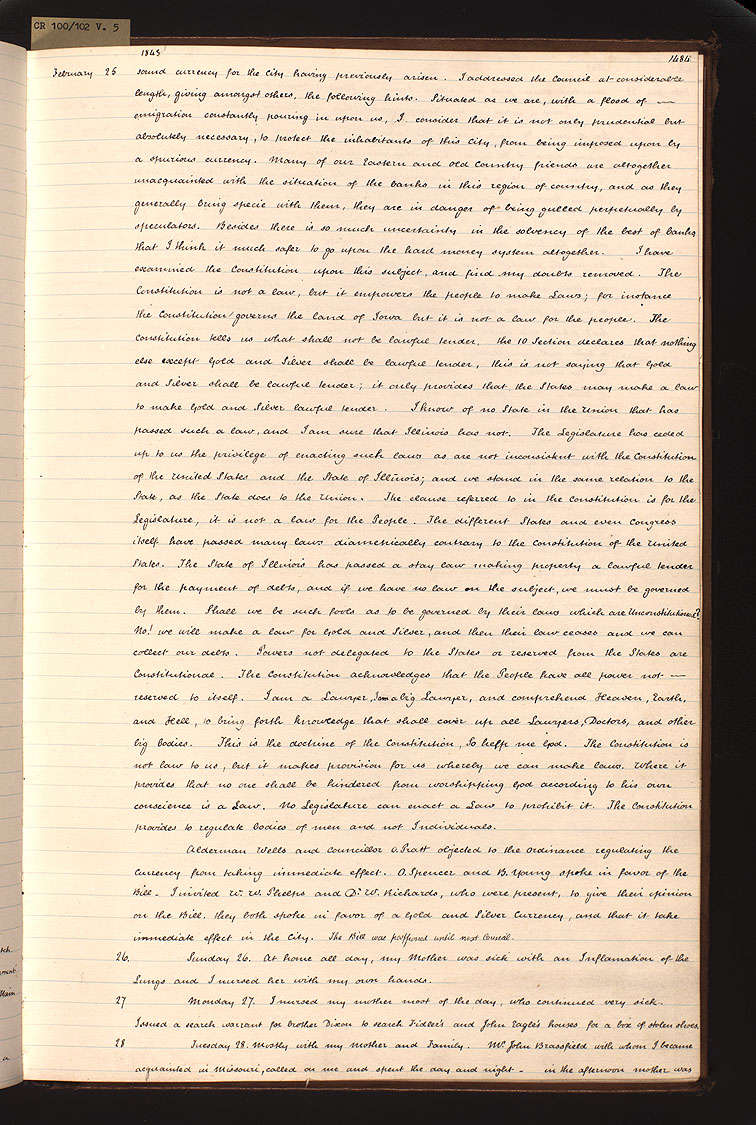 CR 100/102 V. 5
1843
1484
February 25 sound currency for the city having previously arisen. I addressed the Council at considerable
length, giving amongst others, the following hints. Situated as we are, with a flood of —
emigration constantly pouring in upon us, I consider that it is not only prudential but
absolutely necessary, to protect the inhabitants of this City, from being imposed upon by
a spurious currency. Many of our Eastern and old Country friends are altogether
unacquainted with the situation of the banks in this region of country, and as they
generally bring specie with them, they are in danger of being gulled perpetually by
speculators. Besides there is so much uncertainty in the solvency of the best of banks,
that I think it much safer to go upon the hard money system altogether. I have
examined the Constitution upon this subject, and find my doubts removed. The
Constitution is not a law, but it empowers the people to make Laws; for instance
the Constitution governs the land of Iowa but it is not a law for the people. The
Constitution tells us what shall not be lawful tender, the 10 Section declares that nothing
else except Gold and Silver shall be lawful tender, this is not saying that Gold
and Silver shall be lawful tender; it only provides that the States may make a law
to make Gold and Silver lawful tender. I know of no State in the Union that has
passed such a law, and I am sure that Illinois has not. The Legislature has ceded
up to us the privilege of enacting such laws as are not inconsistent with the Constitution
of the United States and the State of Illinois; and we stand in the same relation to the
State, as the State does to the Union. The clause referred to in the Constitution is for the
Legislature, it is not a law for the People. The different States and even Congress
itself have passed many laws diametrically contrary to the Constitution of the United
States. The State of Illinois has passed a stay law making property a lawful tender
for the payment of debts, and if we have no law on the subject, we must be governed
by them. Shall we be such fools as to be governed by their laws which are Unconstitutional?
No! we will make a law for Gold and Silver, and then their law ceases and we can
collect our debts. Powers not delegated to the States or reserved from the States are
Constitutional. The Constitution acknowledges that the People have all power not —
reserved to itself. I am a Lawyer, I am a big Lawyer, and comprehend Heaven, Earth,
and Hell, to bring forth knowledge that shall cover up all Lawyers, Doctors, and other
big bodies. This is the doctrine of the Constitution, So help me God. The Constitution is
not law to us, but it makes provision for us whereby we can make laws. Where it
provides that no one shall be hindered from worshipping God according to his own
conscience is a Law. No Legislature can enact a Law to prohibit it. The Constitution
provides to regulate bodies of men and not Individuals.
Alderman Wells and Councillor O. Pratt objected to the Ordinance regulating the
Currency from taking immediate effect. O. Spencer and B. Young spoke in favor of the
Bill. I invited W. W. Phelps and Dr. W. Richards, who were present, to give their opinion
on the Bill. they both spoke in favor of a Gold and Silver Currency, and that it take
immediate effect in the City. The Bill was postponed until next Council.
26. Sunday 26. At home all day, my Mother was sick with an Inflamation of the
Lungs and I nursed her with my own hands.
27 Monday 27. I nursed my mother most of the day, who continued very sick.
Issued a search warrant for brother Dixon to search Fidler's and John Eagle's houses for a box of stolen shoes.
28 Tuesday 28. Mostly with my mother and Family. Mr. John Brassfield with whom I became
acquainted in Missouri, called on me and spent the day and night – in the afternoon mother was